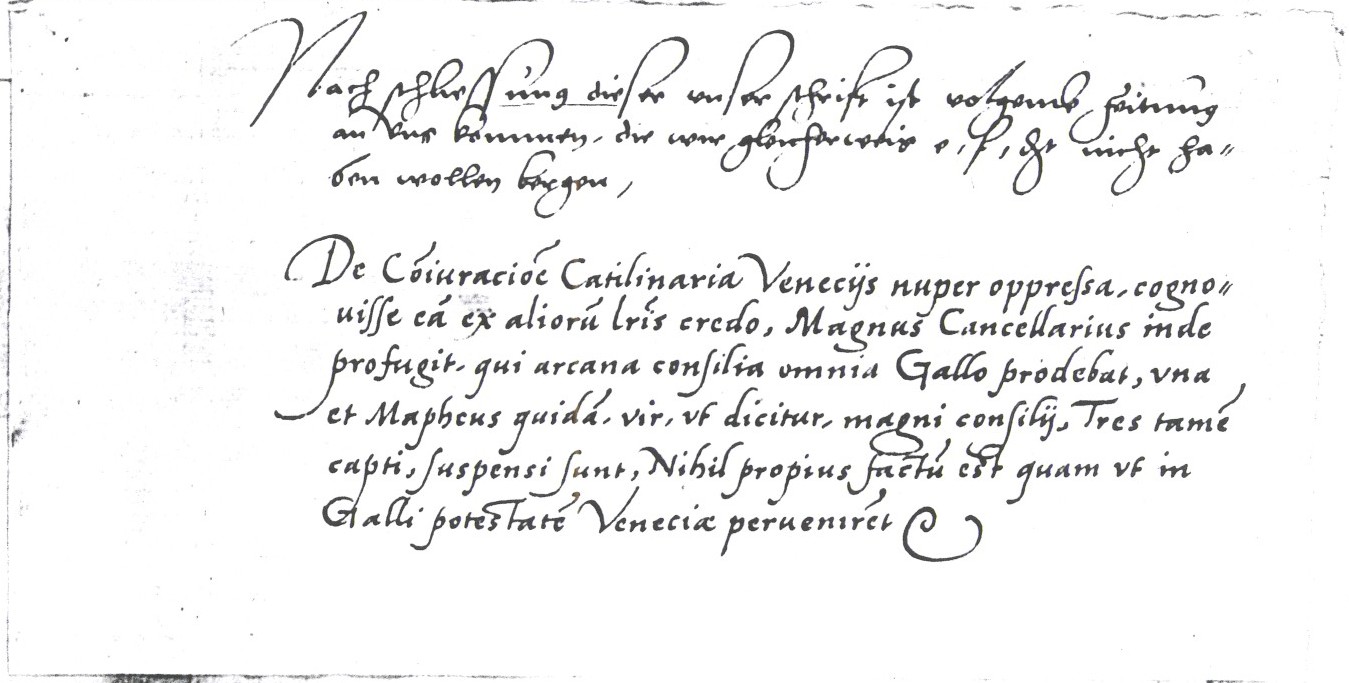 Nach schliessung dieser unser schrift ist volgende Zeitung
an uns kommen, die wir gleicherweis e, f, dht nicht ha=
ben wollen bergen,
De Cōiuraciōe Catilinaria Venecijs nuper oppreſsa, cogno=
uiſſe eā ex aliorū lr̄is credo, Magnus Cancellarius inde
profugit, qui arcana conſilia omnia Gallo prodebat, vna
et Mapheus quidā, vir, vt dicitur, magni conſilij, Tres tamē
capti, ſuspensi ſunt, Nihil propius factū est quam vt in
Galli potestatē Veneciæ peruenirēt